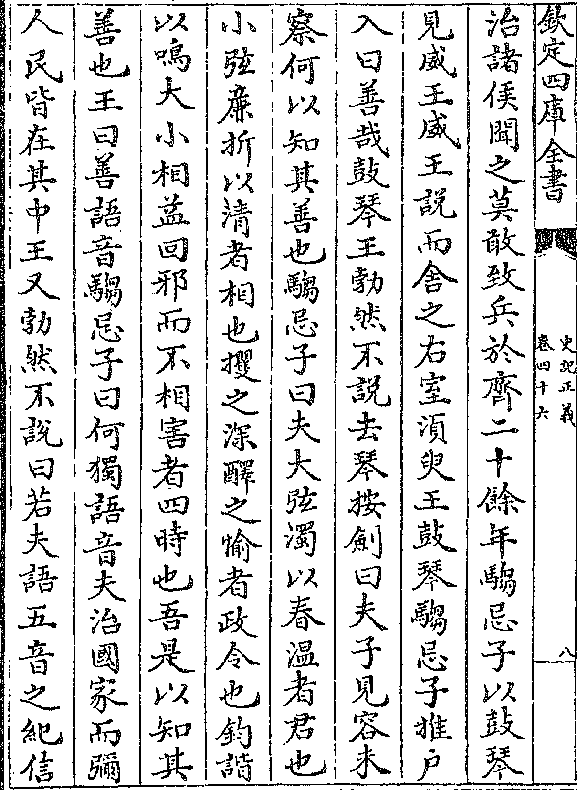 欽定四庫全書
史記正義
卷四十六
八
治諸侯聞之莫敢致兵於齊二十餘年騶忌子以鼓琴
見威王威王説而舍之右室湏臾王鼓琴騶忌子推户
入曰善哉鼓琴王勃然不説去琴按劍曰夫子見容未
察何以知其善也騶忌子曰夫大弦濁以春温者君也
小弦亷折以清者相也攫之深醳之愉者政令也鈞諧
以鳴大小相益回邪而不相害者四時也吾是以知其
善也王曰善語音騶忌子曰何獨語音夫治國家而彌
人民皆在其中王又勃然不説曰若夫語五音之紀信